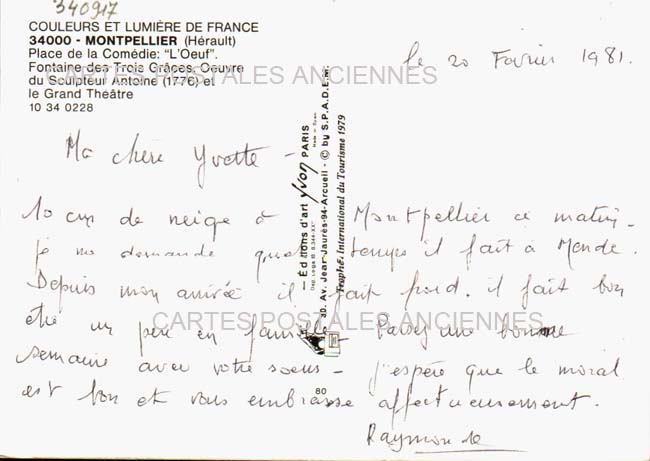 340917
COULEURS ET LUMIÈRE DE FRANCE
34000 - MONTPELLIER (Hérault)
Place de la Comédie: "L'Oeuf".
Fontaine des Trois Grâces, Oeuvre
du Sculpteur Antoine (1776) et
le Grand Théâtre
10 34 0228
le 20 Février 1981.
CARTES POSTALES ANCIENNES
Ma chère Yvette -
10 cm de neige à Montpellier ce matin.
je me demande quel temps il fait à Mende.
Depuis mon arrivée il fait froid. il fait bon
être un peu en famille. Passez une bonne
CARTES POSTALES ANCIENNES
semaine avec votre soeur - j'espère que le moral
est bon et vous embrasse affectueusement.
Raymonde
Editions d'art Yvon PARIS
30, Av. Jean Jaurès-94-Arcueil - © by S.P.A.D.E.M.
Troph. International du Tourisme 1979
80